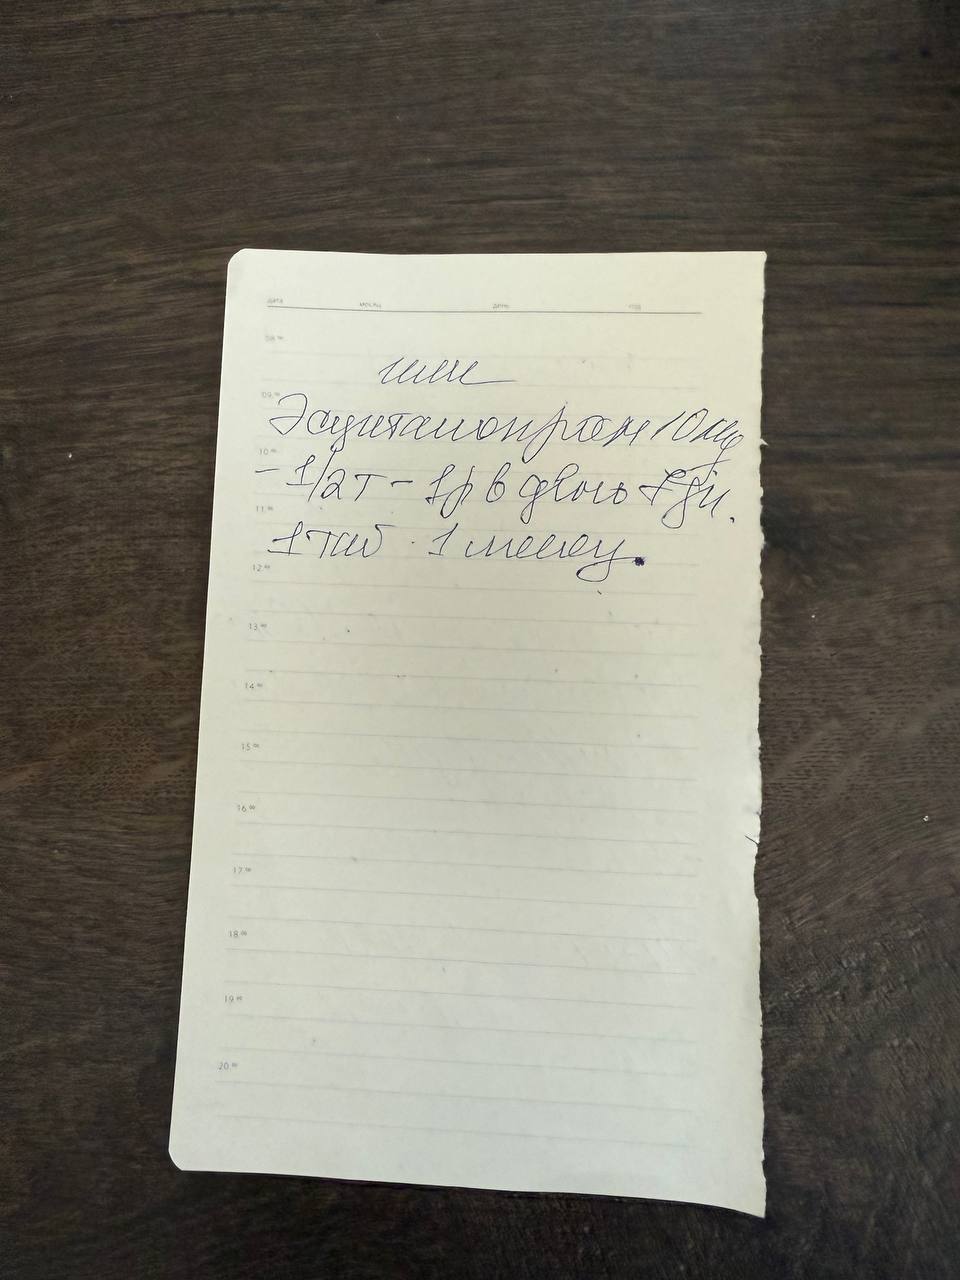 ДАТА МЕСЯЦ ДЕНЬ ГОД
08⁰⁰
или
09⁰⁰
Эсциталопрам 10мг
10⁰⁰
- 1/2 т - 1 р в день 7 дн.
11⁰⁰
1 таб . 1 месяц.
12⁰⁰
13⁰⁰
14⁰⁰
15⁰⁰
16⁰⁰
17⁰⁰
18⁰⁰
19⁰⁰
20⁰⁰